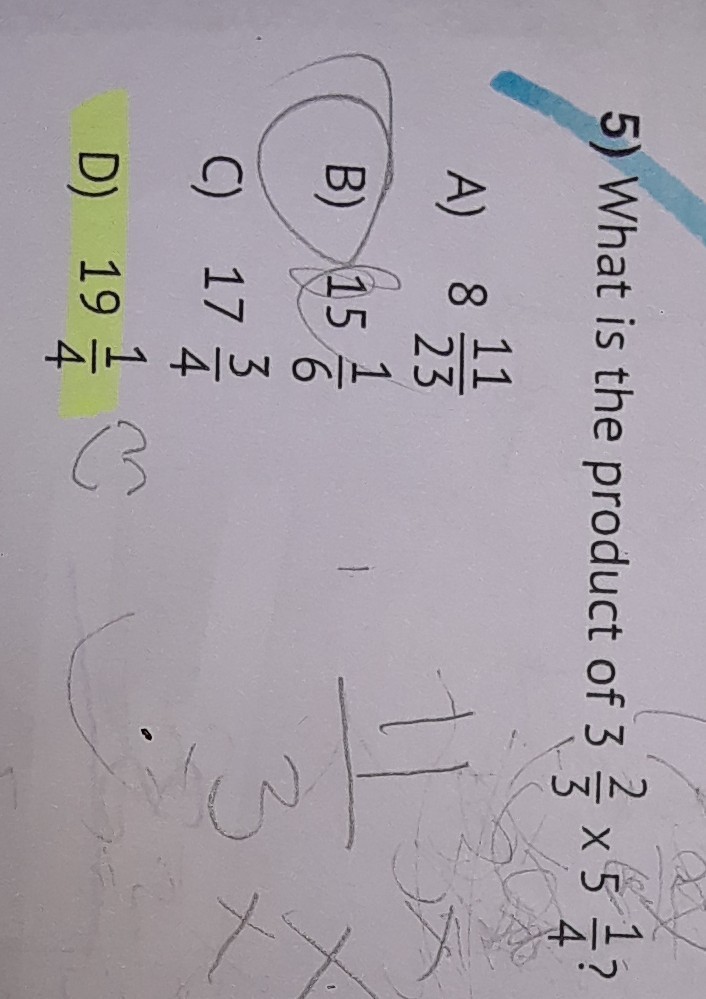 5) What is the product of 3 2/3 x 5 1/4?
A) 8 11/23
B) 15 1/6
C) 17 3/4
D) 19 1/4
11/3 x